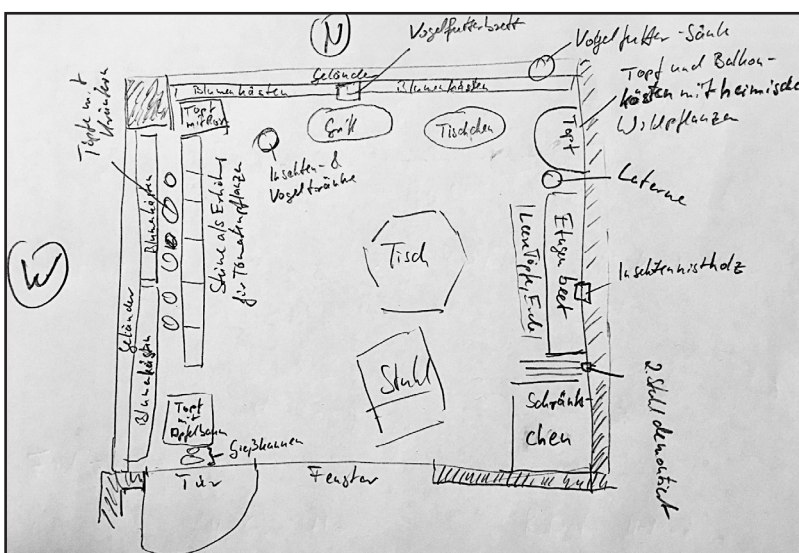 N
Vogelfutterbrett
Vogelfutter-Säule
Topf und Balkon-
kästen mit heimischen
Wildpflanzen
Geländer
Blumenkästen
Blumenkästen
Töpfe mit
Topf
Grill
Tischchen
Topf
Insekten- &
Vogeltränke
Laterne
Blumenkästen
Steine als Erhöhung
für Tomatenpflanzen
Tisch
Leere Töpfe, Erde
Etagenbeet
Insektennistholz
W
Geländer
Blumenkästen
Stuhl
2. Stuhl demontiert
Schränk-
chen
Topf
mit
Apfelbaum
Gießkannen
Tür
Fenster